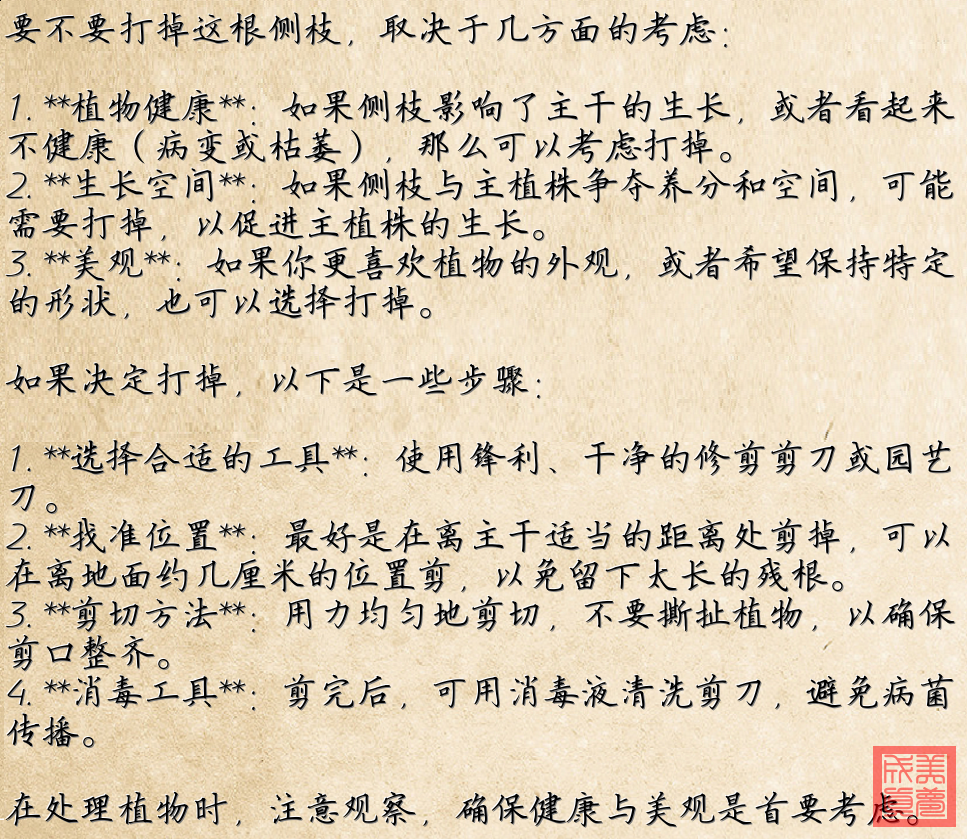 要不要打掉这根侧枝，取决于几方面的考虑：
1. **植物健康**：如果侧枝影响了主干的生长，或者看起来
不健康（病变或枯萎），那么可以考虑打掉。
2. **生长空间**：如果侧枝与主植株争夺养分和空间，可能
需要打掉，以促进主植株的生长。
3. **美观**：如果你更喜欢植物的外观，或者希望保持特定
的形状，也可以选择打掉。
如果决定打掉，以下是一些步骤：
1. **选择合适的工具**：使用锋利、干净的修剪剪刀或园艺
刀。
2. **找准位置**：最好是在离主干适当的距离处剪掉，可以
在离地面约几厘米的位置剪，以免留下太长的残根。
3. **剪切方法**：用力均匀地剪切，不要撕扯植物，以确保
剪口整齐。
4. **消毒工具**：剪完后，可用消毒液清洗剪刀，避免病菌
传播。
在处理植物时，注意观察，确保健康与美观是首要考虑。